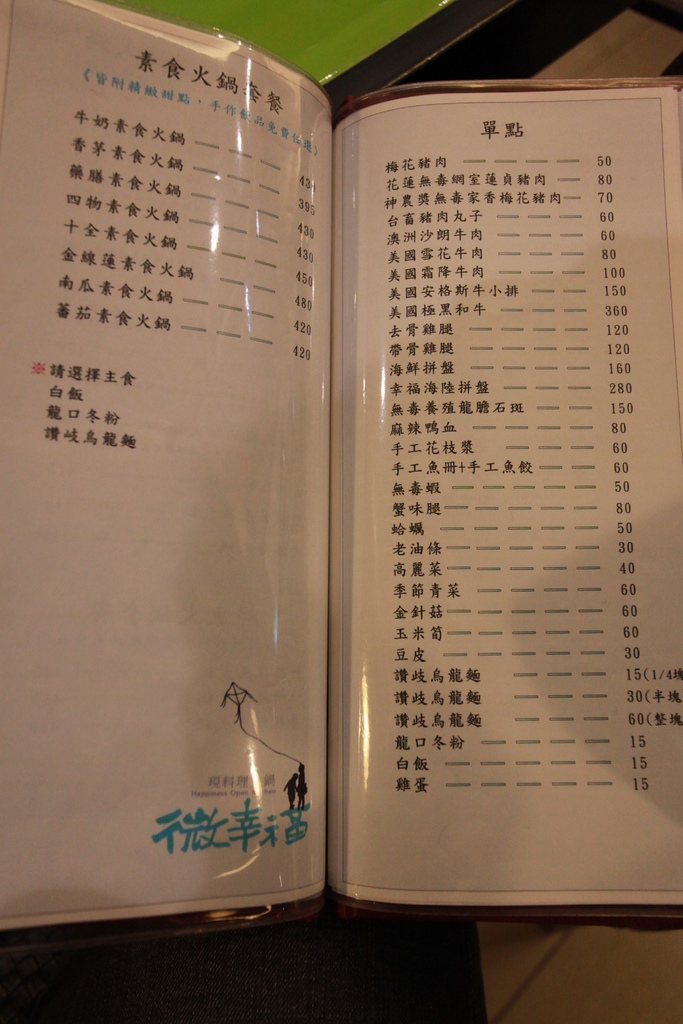 素食火鍋套餐
《皆附精緻甜點，手作飲品免費任選》
牛奶素食火鍋 43
香茅素食火鍋 395
藥膳素食火鍋 430
四物素食火鍋 430
十全素食火鍋 450
金線蓮素食火鍋 480
南瓜素食火鍋 420
蕃茄素食火鍋 420
※請選擇主食
白飯
龍口冬粉
讚岐烏龍麵
現料理 鍋
Happiness Open
微幸福
單點
梅花豬肉 50
花蓮無毒網室蓮貞豬肉 80
神農獎無毒家香梅花豬肉 70
台畜豬肉丸子 60
澳洲沙朗牛肉 60
美國雪花牛肉 80
美國霜降牛肉 100
美國安格斯牛小排 150
美國極黑和牛 360
去骨雞腿 120
帶骨雞腿 120
海鮮拼盤 160
幸福海陸拼盤 280
無毒養殖龍膽石斑 150
麻辣鴨血 80
手工花枝漿 60
手工魚冊+手工魚餃 60
無毒蝦 50
蟹味腿 80
蛤蠣 50
老油條 30
高麗菜 40
季節青菜 60
金針菇 60
玉米筍 60
豆皮 30
讚岐烏龍麵 15(1/4塊
讚岐烏龍麵 30(半塊
讚岐烏龍麵 60(整塊
龍口冬粉 15
白飯 15
雞蛋 15